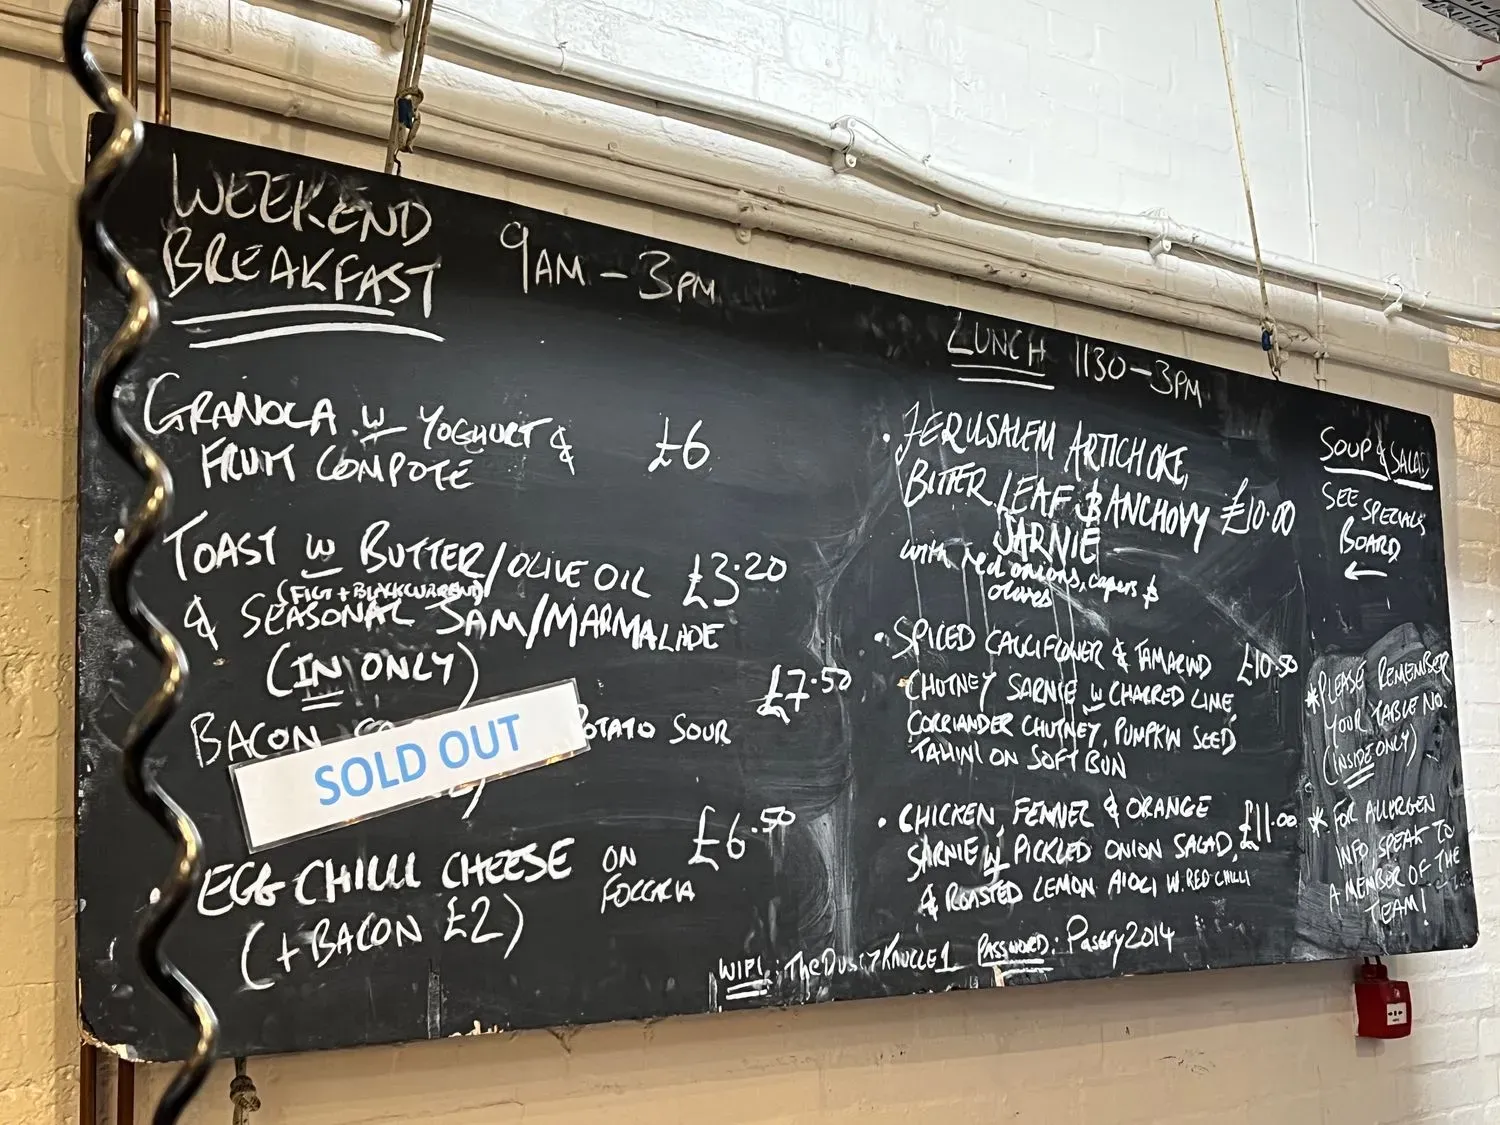 WEEKEND
BREAKFAST
9AM – 3PM
GRANOLA W YOGHURT &
FRUIT COMPOTE
£6
TOAST W BUTTER/OLIVE OIL £3.20
(FIG + BLACKCURRANT)
& SEASONAL JAM/MARMALADE
(IN ONLY)
£7.50
BACON
POTATO SOUR
SOLD OUT
EGG CHILLI CHEESE ON
FOCCACIA
£6.50
(+ BACON £2)
LUNCH 1130–3PM
• JERUSALEM ARTICHOKE,
BITTER LEAF & ANCHOVY £10.00
SARNIE
with red onions, capers &
olives
• SPICED CAULIFLOWER & TAMARIND £10.50
CHUTNEY SARNIE W CHARRED LIME,
CORRIANDER CHUTNEY, PUMPKIN SEED
TAHINI ON SOFT BUN
• CHICKEN, FENNEL & ORANGE £11.00
SARNIE W PICKLED ONION SALAD,
& ROASTED LEMON AIOLI W. RED CHILLI
WIFI: TheDustyKnuckle1 PASSWORD: Pastry2014
SOUP & SALAD
SEE SPECIALS
BOARD
←
* PLEASE REMEMBER
YOUR TABLE NO.
(INSIDE ONLY)
* FOR ALLERGEN
INFO SPEAK TO
A MEMBER OF THE
TEAM!